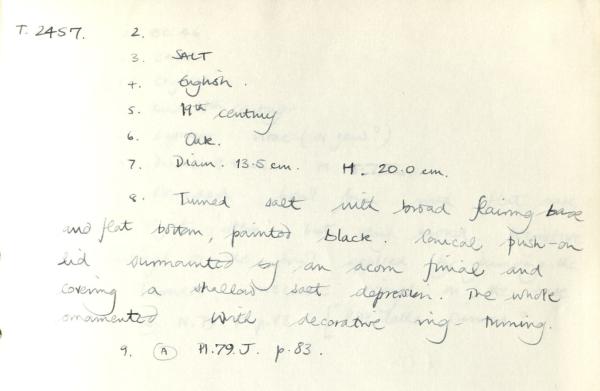 T. 2457. 2.
3. SALT
4. English.
5. 19th century
6. Oak.
7. Diam. 13.5 cm. H. 20.0 cm.
8. Turned salt with broad flairing base
and flat bottom, painted black. Conical push-on
lid surmounted by an acorn finial and
covering a shallow salt depression. The whole
ornamented with decorative ring-turning.
9. (A) Pl. 79. J. p. 83.